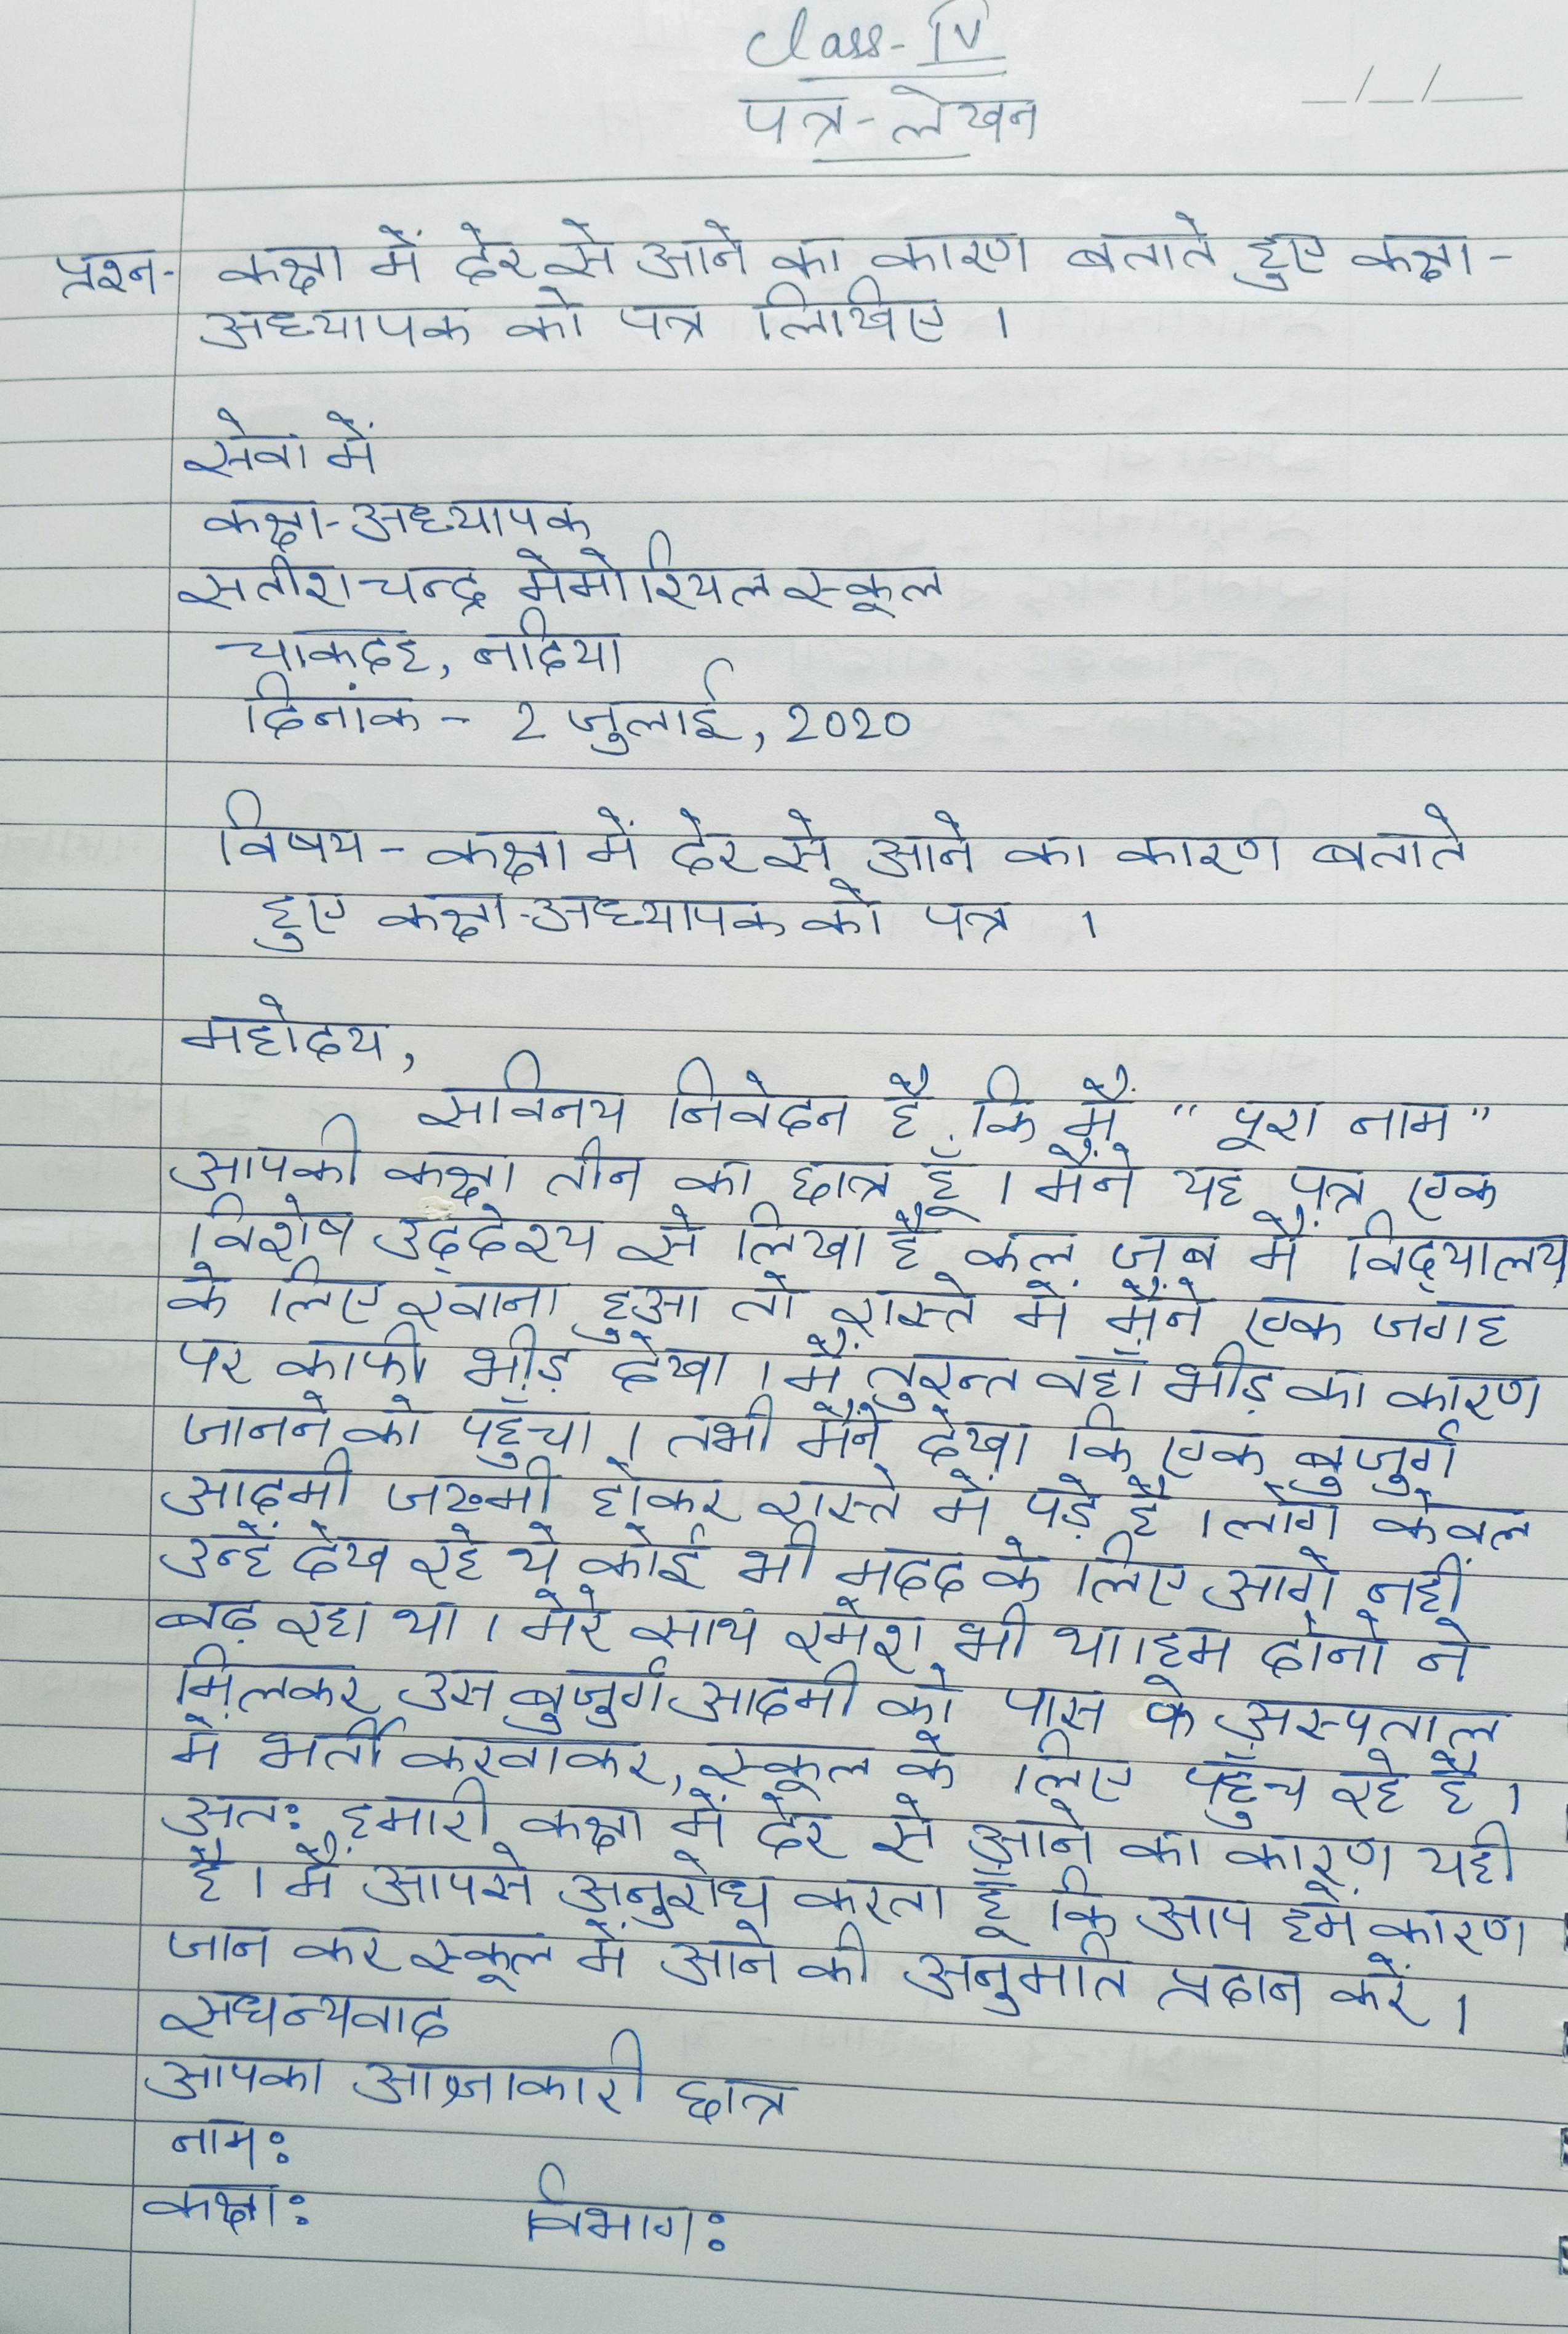 Class-IV
पत्र-लेखन
_/_/__
प्रश्न- कक्षा में देर से आने का कारण बताते हुए कक्षा-
अध्यापक को पत्र लिखिए ।
सेवा में
कक्षा-अध्यापक
सतीश चन्द्र मेमोरियल स्कूल
चाकदह, नदिया
दिनांक - 2 जुलाई, 2020
विषय - कक्षा में देर से आने का कारण बताते
हुए कक्षा-अध्यापक को पत्र ।
महोदय,
सविनय निवेदन है कि मैं " पूरा नाम "
आपकी कक्षा तीन का छात्र हूँ । मैंने यह पत्र एक
विशेष उद्देश्य से लिखा है कल जब मैं विद्यालय
के लिए रवाना हुआ तो रास्ते में मैंने एक जगह
पर काफी भीड़ देखा । मैं तुरन्त वहाँ भीड़ का कारण
जानने को पहुँचा । तभी मैंने देखा कि एक बुजुर्ग
आदमी जख्मी होकर रास्ते में पड़े है । लोग केवल
उन्हें देख रहे थे कोई भी मदद के लिए आगे नहीं
बढ़ रहा था । मेरे साथ रमेश भी था। हम दोनों ने
मिलकर उस बुजुर्ग आदमी को पास के अस्पताल
में भर्ती करवाकर, स्कूल के लिए पहुँच रहे है ।
अतः हमारी कक्षा में देर से आने का कारण यही
है । मैं आपसे अनुरोध करता हूँ कि आप हमे कारण
जान कर स्कूल में आने की अनुमति प्रदान करें ।
सधन्यवाद
आपका आज्ञाकारी छात्र
नाम:
कक्षा: विभाग: